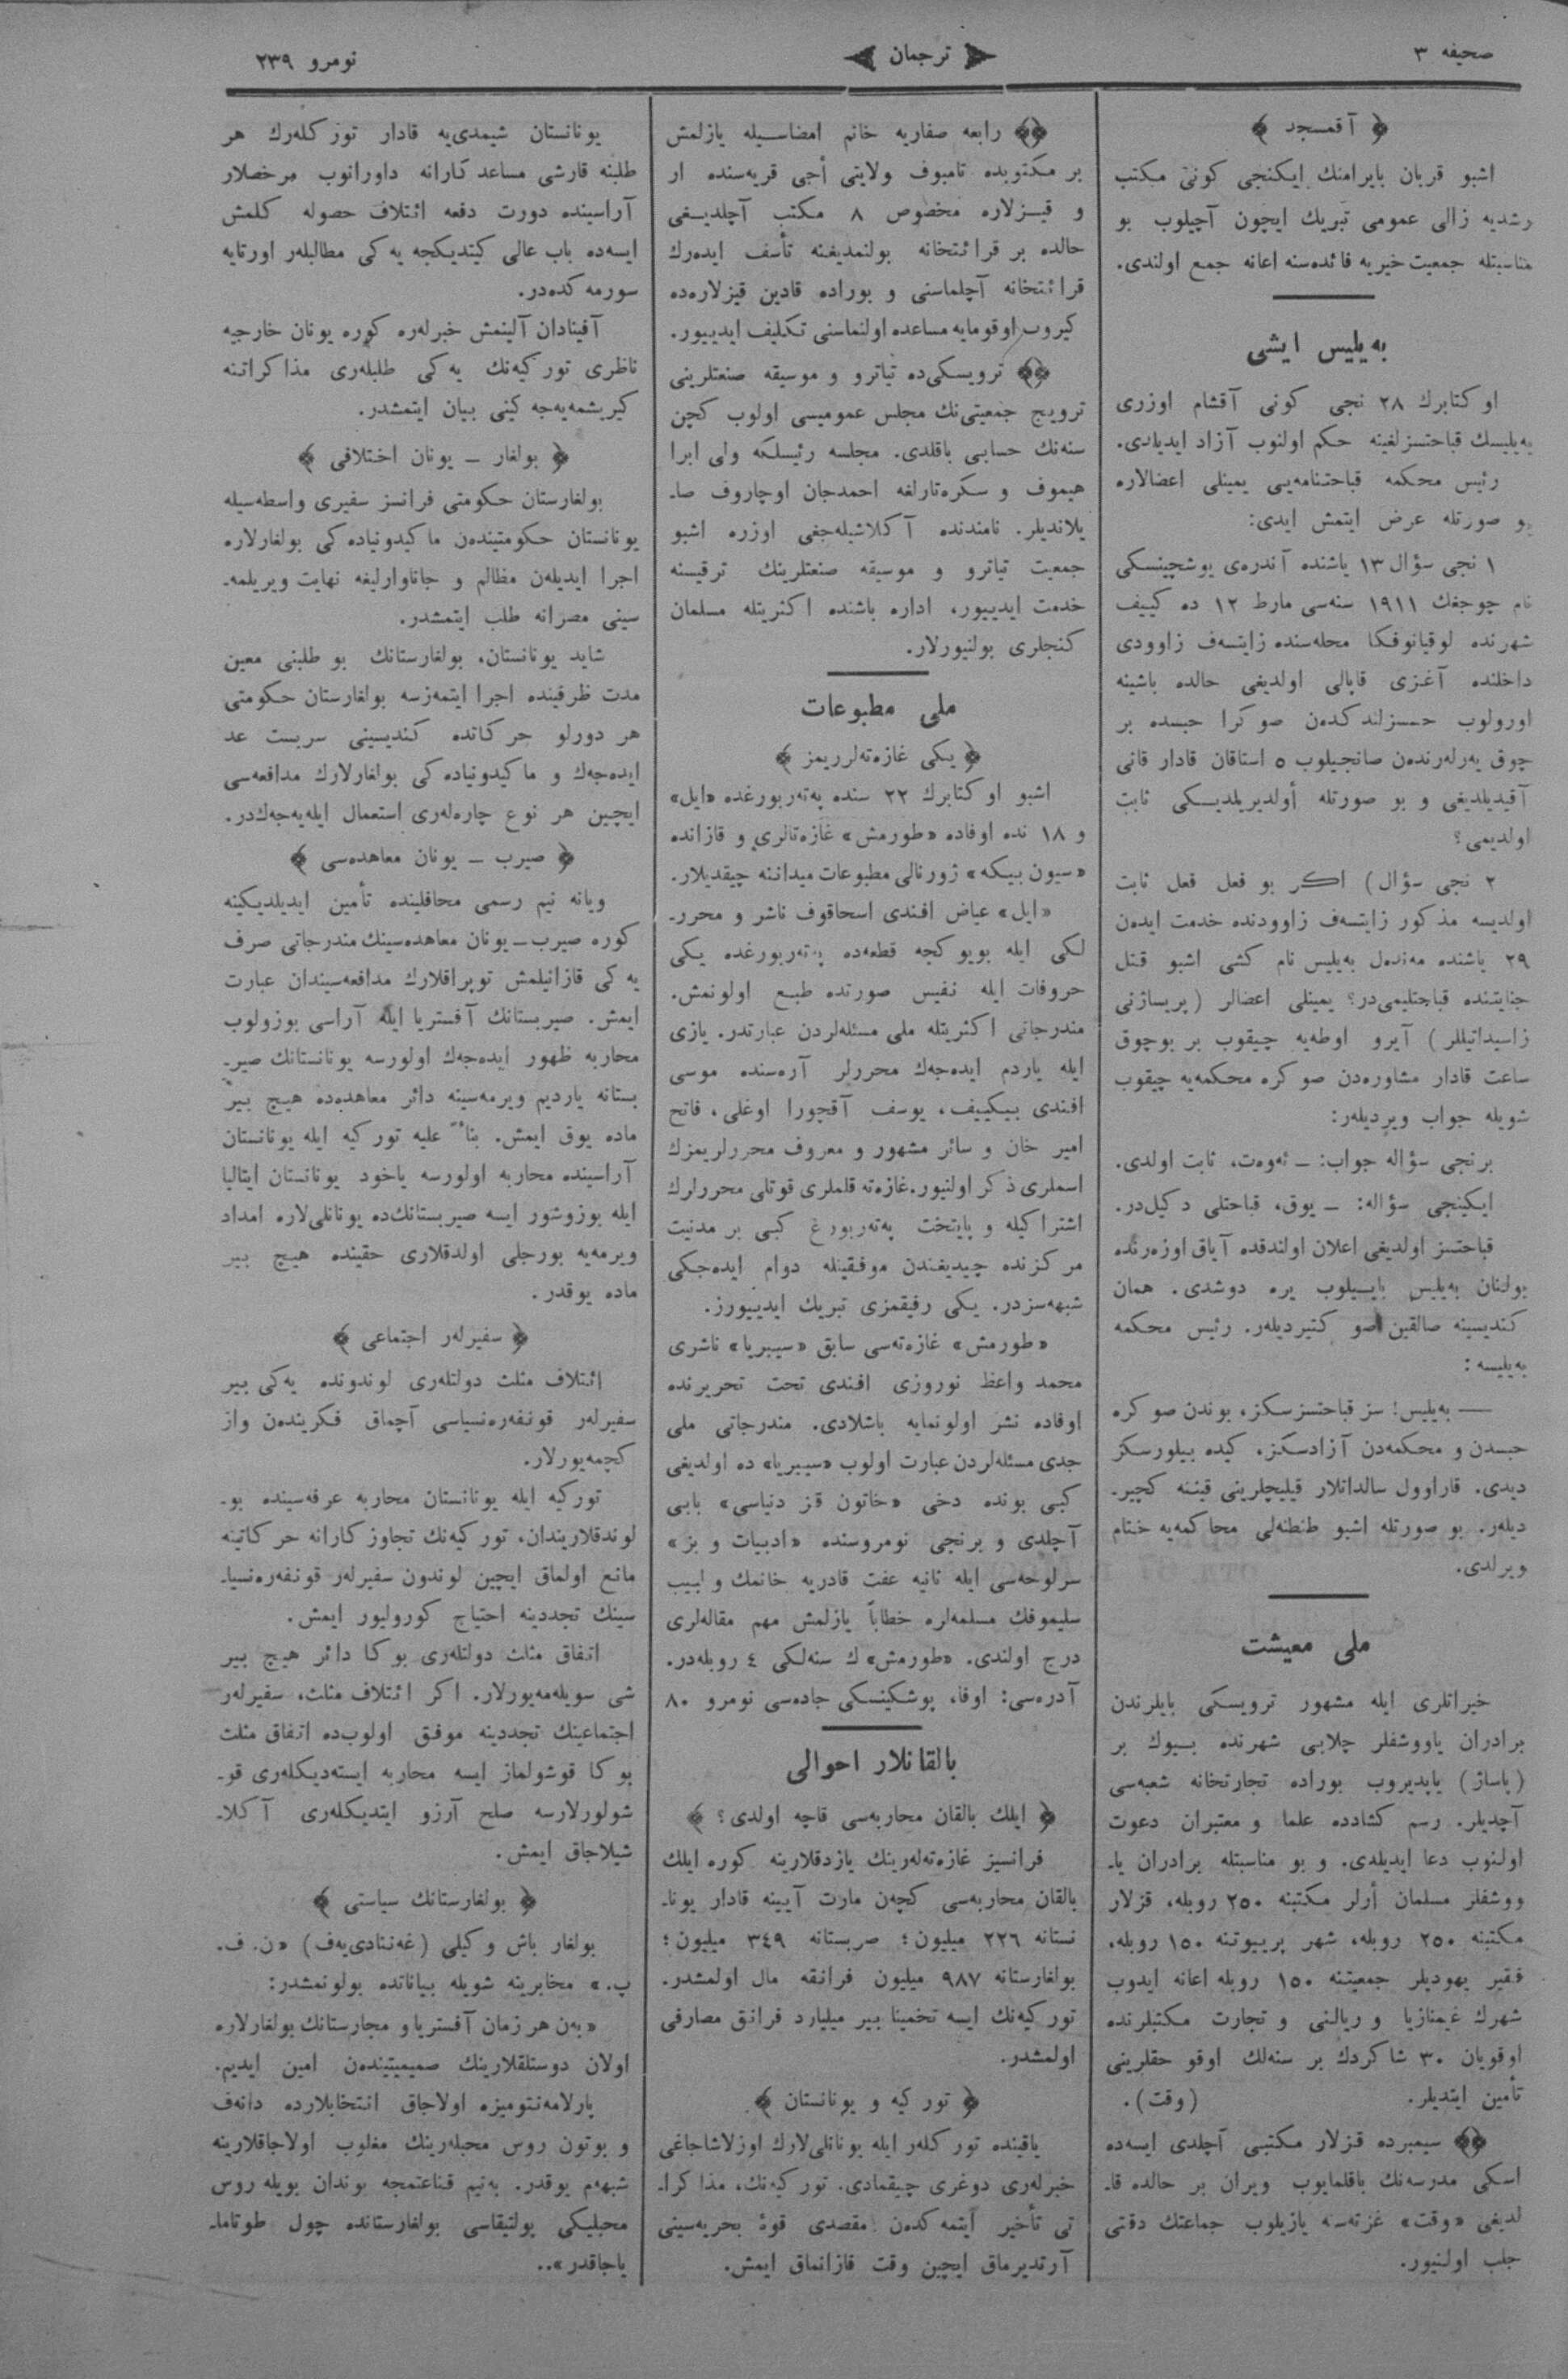 صحیفه ۳
ترجمان
نومرو ۲۳۹
﴿ آقمسجد ﴾
اشبو قربان بایرامنك ایكنجی كونی مكتب
رشدیه زالی عمومی تبریك ایچون آچیلوب بو
مناسبتله جمعیت خیریه فائده‌سنه اعانه جمع اولندی.
به‌یلیس ایشی
اوكتابرك ۲۸ نجی كونی آقشام اوزری
به‌یلیسك قباحتسزلغینه حكم اولنوب آزاد ایدیلدی.
رئیس محكمه قباحتنامه‌یی یمینلی اعضالاره
بو صورتله عرض ایتمش ایدی:
۱ نجی سؤال ۱۳ یاشنده آندره‌ی یوشچینسكی
نام چوجغك ۱۹۱۱ سنه‌سی مارط ۱۲ ده كییف
شهرنده لوقیانوفكا محله‌سنده زایتسه‌ف زاوودی
داخلنده آغزی قاپالی اولدیغی حالده باشینه
اورولوب حسزلندكدن صوكرا جسده بر
چوق یه‌رله‌رندن صانجیلوب ۵ استاقان قادار قانی
آقیدیلدیغی و بو صورتله أولدیریلدیكی ثابت
اولدیمی؟
۲ نجی سؤال) اكر بو فعل قعل ثابت
اولدیسه مذكور زایتسه‌ف زاوودنده خدمت ایده‌ن
۲۹ یاشنده مه‌نده‌ل به‌یلیس نام كشی اشبو قتل
جنایتنده قباحتلیمی‌در؟ یمینلی اعضالر (پریساژنی
زاسیداتیللر) آیرو اوطه‌یه چیقوب بر بوچوق
ساعت قادار مشاوره‌دن صوكره محكمه‌یه چیقوب
شویله جواب ویردیله‌ر:
برنجی سؤاله جواب: ــ ئه‌وه‌ت، ثابت اولدی.
ایكینجی سؤاله: ــ یوق، قباحتلی دكیل‌در.
قباحتسز اولدیغی اعلان اولندقده آیاق اوزه‌رنده
بولنان به‌یلیس بایسیلوب یره دوشدی. همان
كندیسینه صالقین صو كتیردیله‌ر. رئیس محكمه
به‌یلیسه:
— به‌یلیس! سز قباحتسزسكز، بوندن صوكره
حبسدن و محكمه‌دن آزادسكز، كیده بیلورسكز
دیدی. قاراوول سالداتلار قیلیچلرینی قیننه كچیر-
دیله‌ر. بو صورتله اشبو طنطنه‌لی محاكمه‌یه ختام
ویرلدی.
ملی معیشت
خیراتلری ایله مشهور ترویسكی بایلرندن
برادران یاووشفلر چلابی شهرنده بیوك بر
(پاساژ) یاپدیروب بوراده تجارتخانه شعبه‌سی
آچدیلر. رسم كشادده علما و معتبران دعوت
اولنوب دعا ایدیلدی. و بو مناسبتله برادران یا-
ووشفلر مسلمان أرلر مكتبنه ۲۵۰ روبله، قزلار
مكتبنه ۲۵۰ روبله، شهر پرییوتنه ۱۵۰ روبله،
فقیر یهودیلر جمعیتنه ۱۵۰ روبله اعانه ایدوب
شهرك غیمنازیا و ریالنی و تجارت مكتبلرنده
اوقویان ۳۰ شاكردك بر سنه‌لك اوقو حقلرینی
تأمین ایتدیلر. (وقت).
﴿﴾ سیمبرده قزلار مكتبی آچلدی ایسه‌ده
اسكی مدرسه‌نك باقلمایوب ویران بر حالده قا-
لدیغی «وقت» غزته‌سنه یازیلوب جماعتك دقتی
جلب اولنیور.
﴿﴾ رابعه صفاریه خانم امضاسیله یازلمش
بر مكتوبده تامبوف ولایتی أجی قریه‌سنده ار
و قیزلاره مخصوص ۸ مكتب آچلدیغی
حالده بر قرائتخانه بولنمدیغنه تأسف ایده‌رك
قرائتخانه آچلماسنی و بوراده قادین قیزلاره‌ده
كیروب اوقومایه مساعده اولنماسنی تكلیف ایدییور.
﴿﴾ ترویسكی‌ده تیاترو و موسیقه صنعتلرینی
ترویج جمعیتی‌نك مجلس عمومیسی اولوب كچن
سنه‌نك حسابی باقلدی. مجلسه رئیسلكه ولی ابرا
هیموف و سكره‌تارلغه احمدجان اوچاروف صا-
یلاندیلر. نامندنده آكلاشیله‌جغی اوزره اشبو
جمعیت تیاترو و موسیقه صنعتلرینك ترقیسنه
خدمت ایدییور، اداره باشنده اكثریتله مسلمان
كنجلری بولنیورلار.
ملی مطبوعات
﴿ یكی غازه‌ته‌لریمز ﴾
اشبو اوكتابرك ۲۲ سنده په‌ته‌ربورغده «ایل»
و ۱۸ نده اوفاده «طورمش» غازه‌تالری و قازانده
«سیون بیكه» ژورنالی مطبوعات میداننه چیقدیلار.
«ایل» عیاض افندی اسحاقوف ناشر و محرر-
لكی ایله بویوكجه قطعه‌ده په‌ته‌ربورغده یكی
حروفات ایله نفیس صورتده طبع اولونمش.
مندرجاتی اكثریتله ملی مسئله‌لردن عبارتدر. یازی
ایله یاردم ایده‌جه‌ك محررلر آره‌سنده موسی
افندی بیكییف، یوسف آقچورا اوغلی، فاتح
امیر خان و سائر مشهور و معروف محررلریمزك
اسملری ذكر اولنیور. غازه‌ته قلملری قوتلی محررلرك
اشتراكیله و پایتخت په‌ته‌ربورغ كبی بر مدنیت
مركزنده چیدیغندن موفقیتله دوام ایده‌جكی
شبهه‌سزدر. یكی رفیقمزی تبریك ایدییورز.
«طورمش» غازه‌ته‌سی سابق «سیبریا» ناشری
محمد واعظ نوروزی افندی تحت تحریرنده
اوفاده نشر اولونمایه باشلادی. مندرجاتی ملی
جدی مسئله‌لردن عبارت اولوب «سیبریا» ده اولدیغی
كبی بونده دخی «خاتون قز دنیاسی» بابی
آچلدی و برنجی نومروسنده «ادبیات و بز»
سرلوحه‌سی ایله ثانیه عفت قادریه خانمك و لبیب
سلیموفك مسلمه‌لره خطاباً یازلمش مهم مقاله‌لری
درج اولندی. «طورمش» ك سنه‌لكی ٤ روبله‌در.
آدره‌سی: اوفا، پوشكینسكی جاده‌سی نومرو ۸۰
بالقانلار احوالی
﴿ ایلك بالقان محاربه‌سی قاچه اولدی؟ ﴾
فرانسیز غازه‌ته‌له‌رینك یازدقلارینه كوره ایلك
بالقان محاربه‌سی كچه‌ن مارت آیینه قادار یونا-
نستانه ۲۲٦ میلیون؛ صربستانه ۳٤۹ میلیون؛
بولغارستانه ۹۸۷ میلیون فرانقه مال اولمشدر.
توركیه‌نك ایسه تخمینا بیر میلیارد فرانق مصارفی
اولمشدر.
﴿ توركیه و یونانستان ﴾
یاقینده توركله‌ر ایله یونانلی‌لارك اوزلاشاجاغی
خبرله‌ری دوغری چیقمادی. توركیه‌نك، مذاكرا-
تی تأخیر ایتمه‌كدن مقصدی قوهٔ بحریه‌سینی
آرتدیرماق ایچین وقت قازانماق ایمش.
یونانستان شیمدی‌یه قادار توركله‌رك هر
طلبنه قارشی مساعدكارانه داورانوب مرخصلار
آراسینده دورت دفعه ائتلاف حصوله كلمش
ایسه‌ده باب عالی كیتدیكجه یه‌كی مطالبله‌ر اورتایه
سورمه‌كده‌در.
آفینادان آلینمش خبرله‌ره كوره یونان خارجیه
ناظری توركیه‌نك یه‌كی طلبله‌ری مذاكراتنه
كیریشمه‌یه‌جه‌كینی بیان ایتمشدر.
﴿ بولغار ــ یونان اختلافی ﴾
بولغارستان حكومتی فرانسز سفیری واسطه‌سیله
یونانستان حكومتینده‌ن ماكیدونیاده‌كی بولغارلاره
اجرا ایدیله‌ن مظالم و جاناوارلیغه نهایت ویریلمه-
سینی مصرانه طلب ایتمشدر.
شاید یونانستان، بولغارستانك بو طلبنی معین
مدت ظرفینده اجرا ایتمه‌زسه بولغارستان حكومتی
هر دورلو حركاتده كندیسینی سربست عد
ایده‌جه‌ك و ماكیدونیاده‌كی بولغارلارك مدافعه‌سی
ایچین هر نوع چاره‌له‌ری استعمال ایله‌یه‌جه‌ك‌در.
﴿ صیرب ــ یونان معاهده‌سی ﴾
ویانه نیم رسمی محافلینده تأمین ایدیلدیكینه
كوره صیرب ــ یونان معاهده‌سینك مندرجاتی صرف
یه‌كی قازانیلمش توپراقلارك مدافعه‌سیندان عبارت
ایمش. صیربستانك آفستریا ایله آراسی بوزولوب
محاربه ظهور ایده‌جه‌ك اولورسه یونانستانك صیر-
بستانه یاردیم ویرمه‌سینه دائر معاهده‌ده هیچ بیر
ماده یوق ایمش. بناءً علیه توركیه ایله یونانستان
آراسینده محاربه اولورسه یاخود یونانستان ایتالیا
ایله بوزوشور ایسه صیربستانك‌ده یونانلی‌لاره امداد
ویرمه‌یه بورجلی اولدقلاری حقینده هیچ بیر
ماده یوقدر.
﴿ سفیرله‌ر اجتماعی ﴾
ائتلاف مثلث دولتله‌ری لوندونده یه‌كی بیر
سفیرله‌ر قونفه‌ره‌نسیاسی آچماق فكرینده‌ن واز
كچمه‌یورلار.
توركیه ایله یونانستان محاربه عرفه‌سینده بو-
لوندقلاریندان، توركیه‌نك تجاوزكارانه حركاتینه
مانع اولماق ایچین لوندون سفیرله‌ر قونفه‌ره‌نسیا-
سینك تجددینه احتیاج كورولیور ایمش.
اتفاق مثلث دولتله‌ری بوكا دائر هیچ بیر
شی سویله‌مه‌یورلار. اكر ائتلاف مثلث، سفیرله‌ر
اجتماعینك تجددینه موفق اولوب‌ده اتفاق مثلث
بوكا قوشولماز ایسه محاربه ایسته‌دیكله‌ری قو-
شولورلارسه صلح آرزو ایتدیكله‌ری آكلا-
شیلاجاق ایمش.
﴿ بولغارستانك سیاستی ﴾
بولغار باش وكیلی (غه‌ننادی‌یه‌ف) «ن. ف.
پ.» مخابرینه شویله بیاناتده بولونمشدر:
«به‌ن هر زمان آفستریا و مجارستانك بولغارلاره
اولان دوستلقلارینك صمیمیتینده‌ن امین ایدیم.
پارلامه‌نتومیزه اولاجاق انتخابلارده دانه‌ف
و بوتون روس محبله‌رینك مغلوب اولاجاقلارینه
شبهه‌م یوقدر. به‌نیم قناعتمجه بوندان بویله روس
محبلیكی پولتیقاسی بولغارستانده چول طوتاما-
یاجاقدر»..